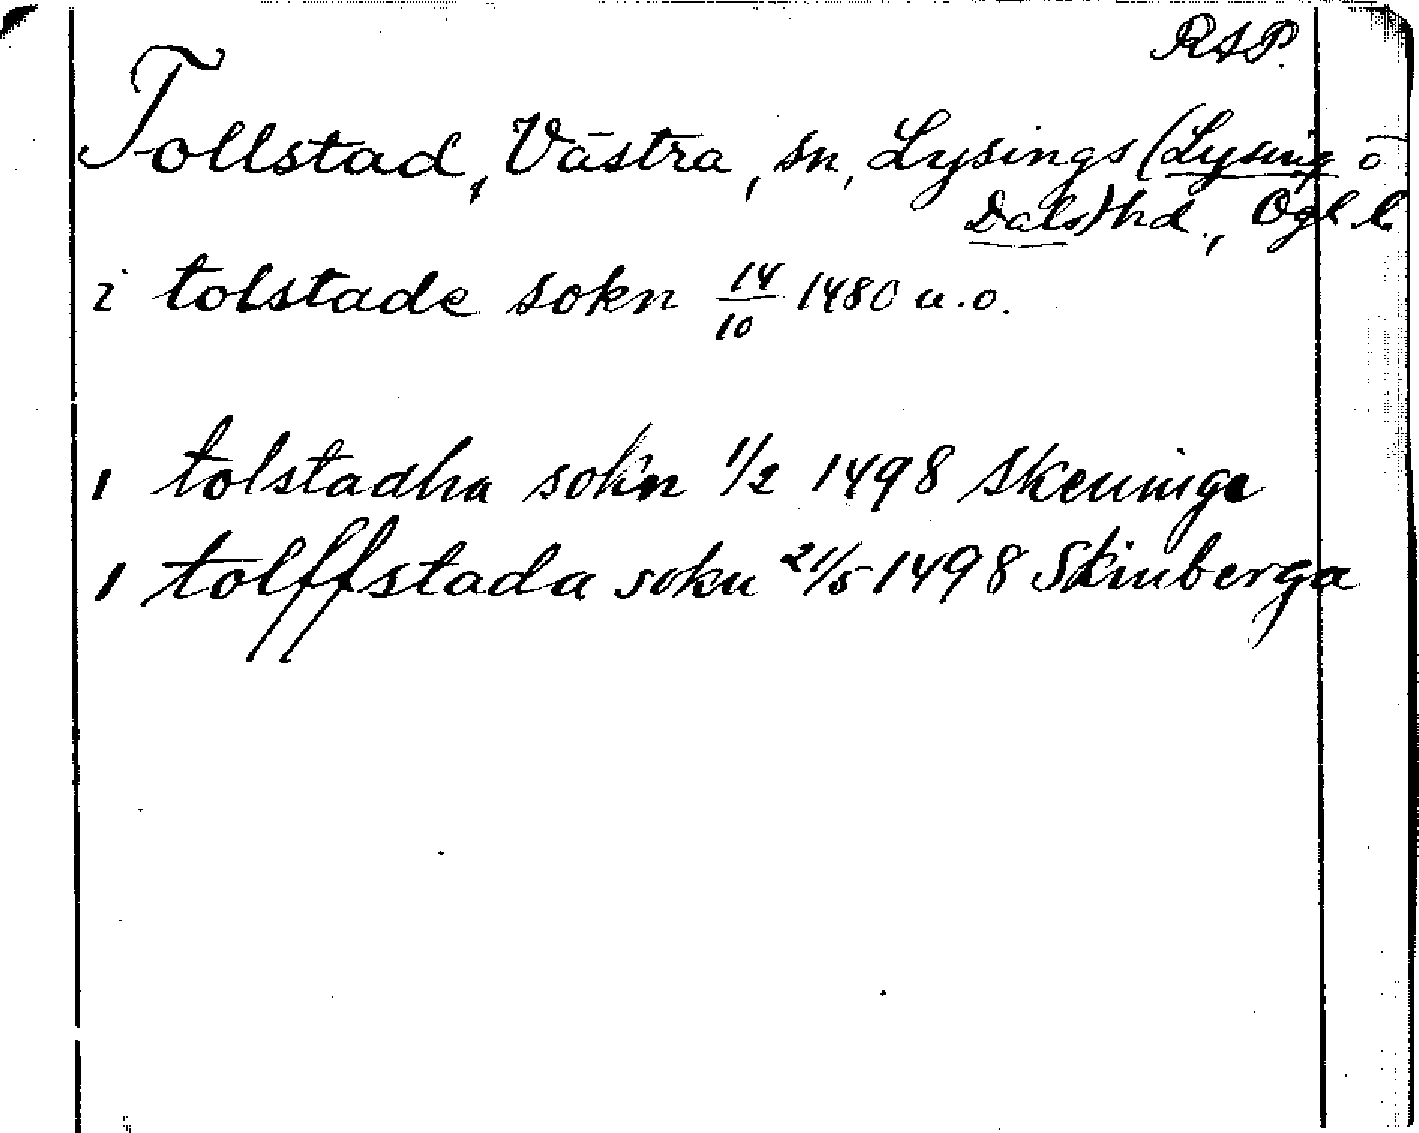 RAP.
Tollstad, Västra, sn, Lysings (Lysing o
Dals) hd., Ögl l.
i tolstade sokn 14/10 1480 u.o.
i tolstadha sokn 1/2 1498 Skeninge
i tolffstada sokn 21/5 1498 Skinberga